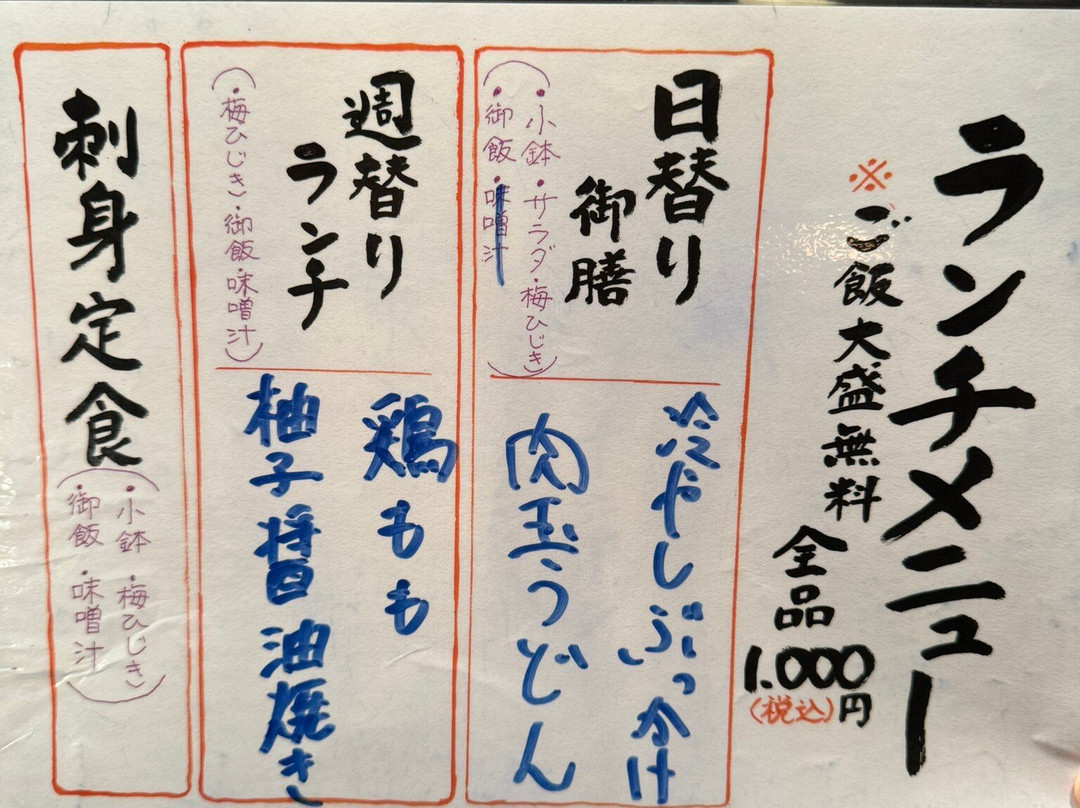 ランチメニュー
※ご飯大盛無料
全品1.000円
(税込)
日替り
御膳
(・小鉢・サラダ・梅ひじき
・御飯・味噌汁)
冷やしぶっかけ
肉玉うどん
週替り
ランチ
(・梅ひじき・御飯・味噌汁)
鶏もも
柚子醤油焼き
刺身定食
(・小鉢・梅ひじき
・御飯・味噌汁)